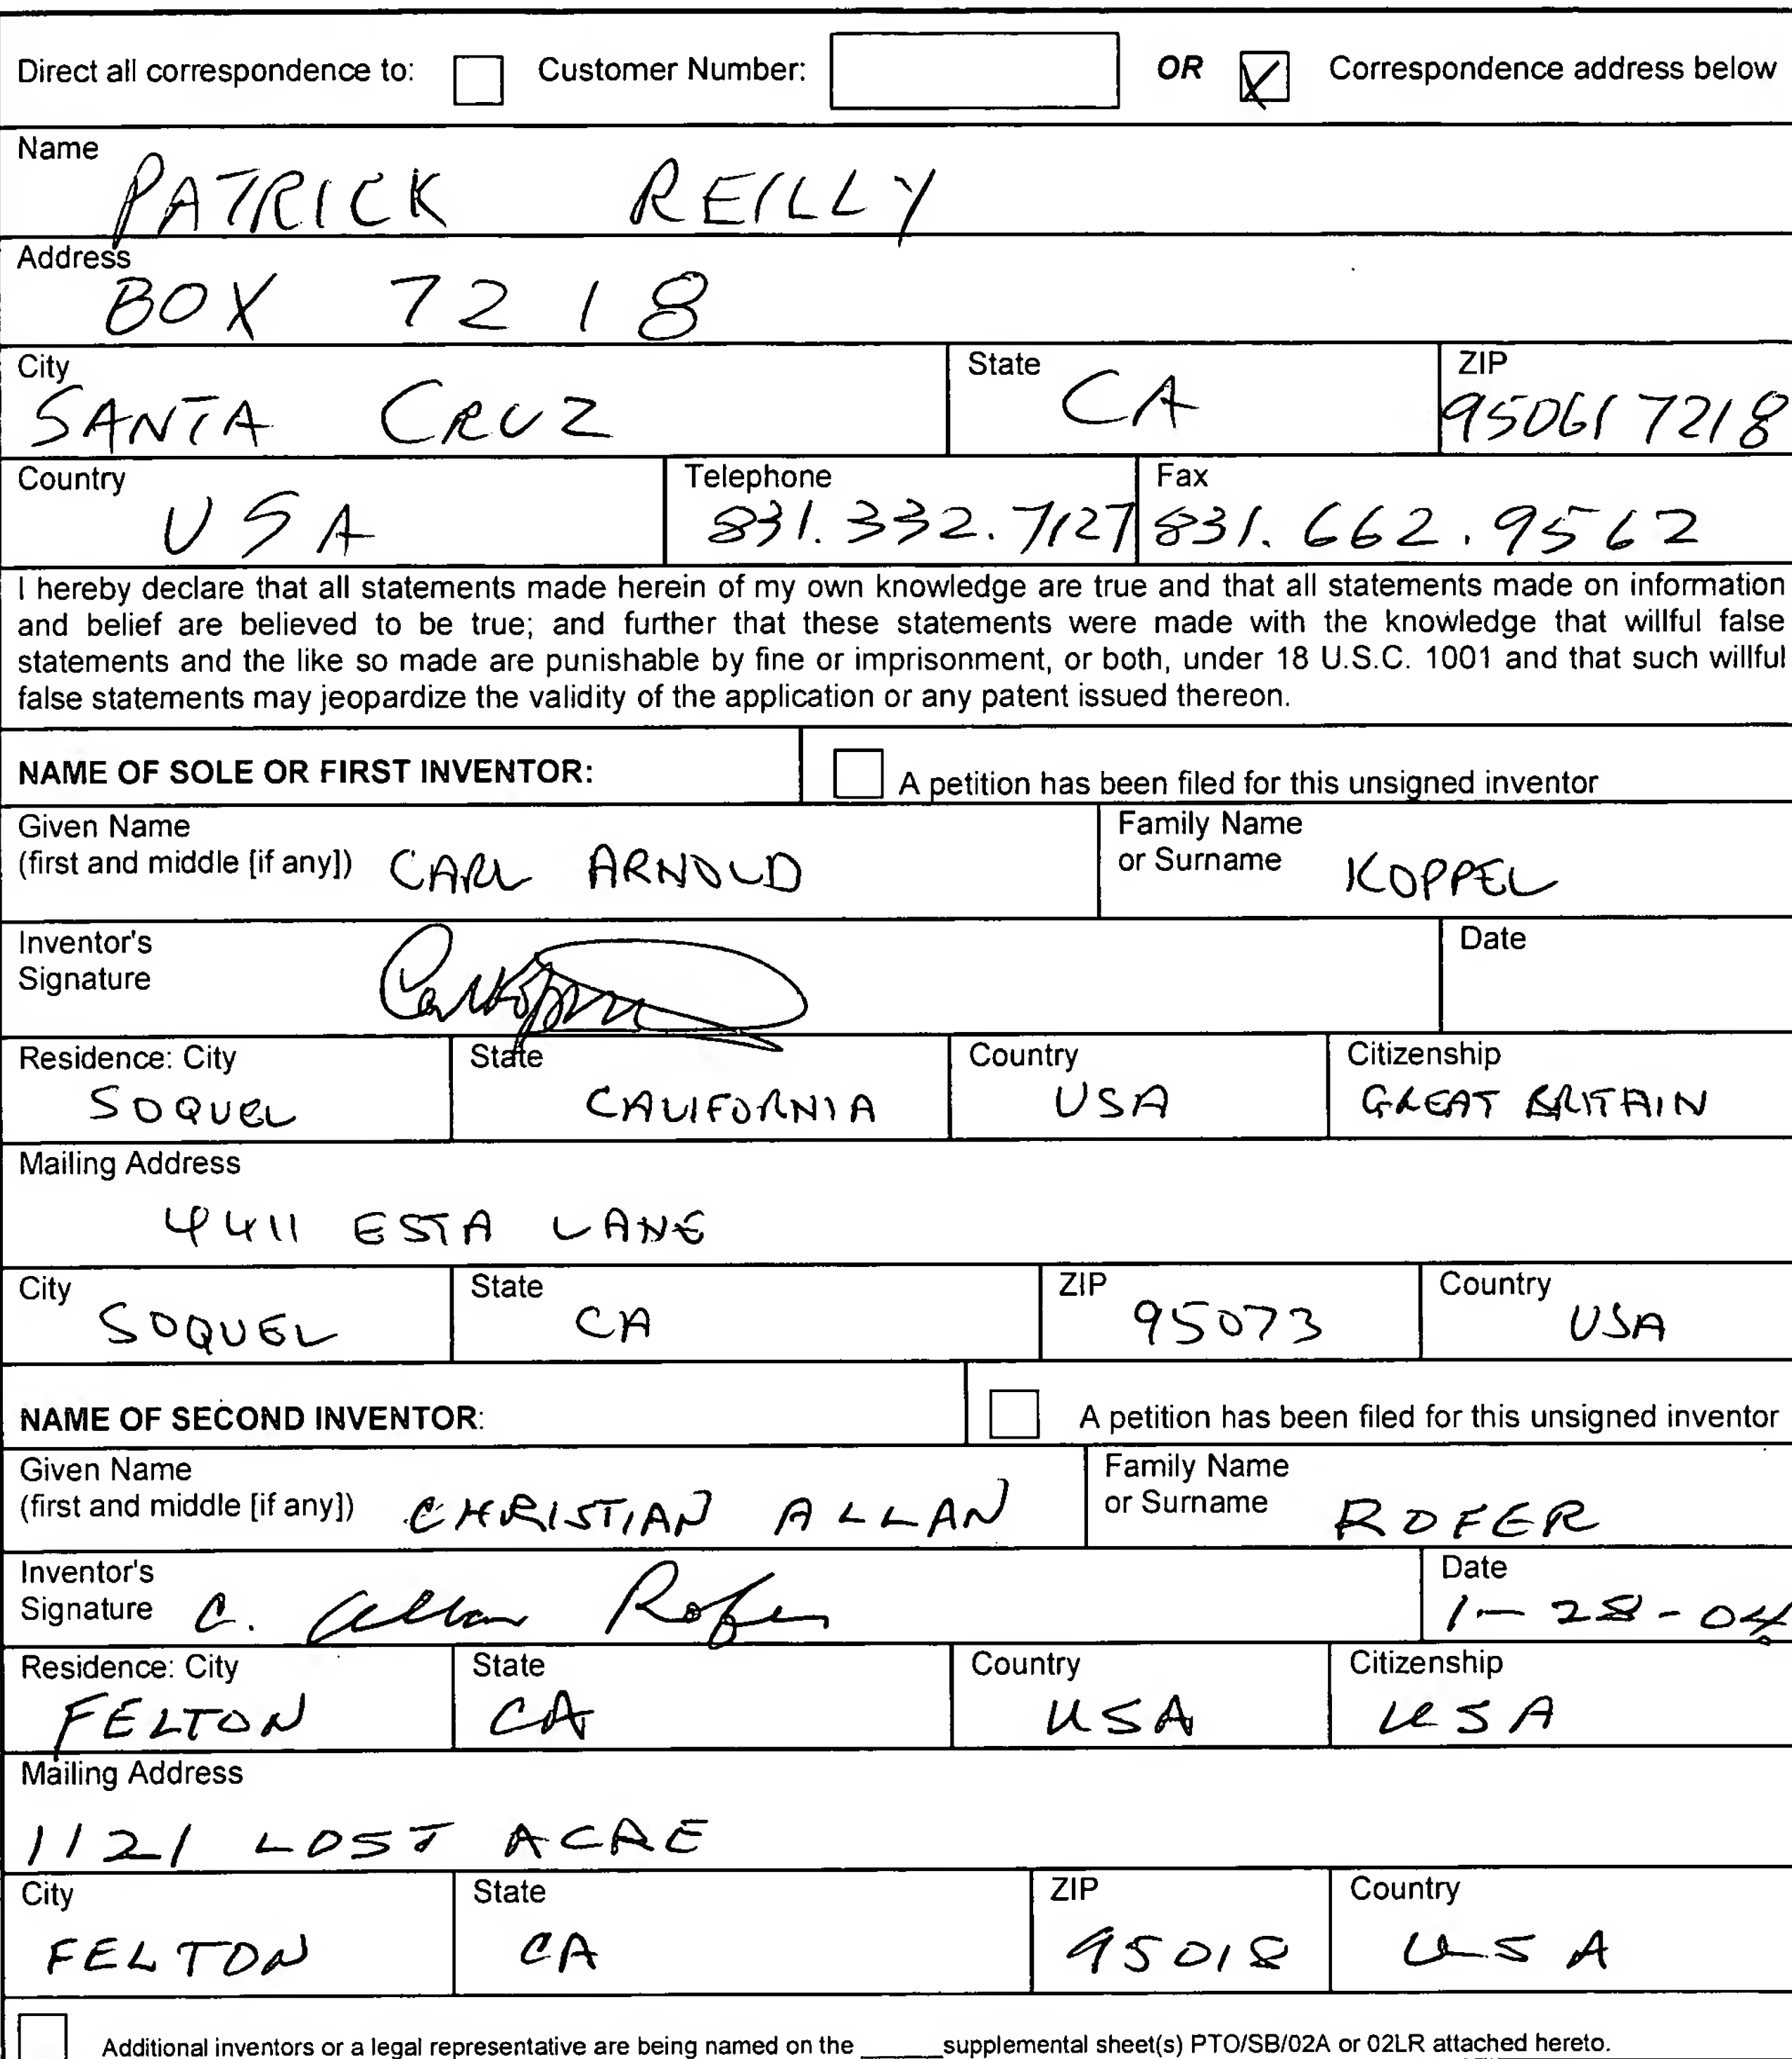 Direct all correspondence to: Customer Number: OR Correspondence address below
Name
PATRICK REILLY
Address
BOX 7218
City State ZIP
SANTA CRUZ CA 950617218
Country Telephone Fax
USA 831.332.7127 831.662.9562
I hereby declare that all statements made herein of my own knowledge are true and that all statements made on information
and belief are believed to be true; and further that these statements were made with the knowledge that willful false
statements and the like so made are punishable by fine or imprisonment, or both, under 18 U.S.C. 1001 and that such willful
false statements may jeopardize the validity of the application or any patent issued thereon.
NAME OF SOLE OR FIRST INVENTOR: A petition has been filed for this unsigned inventor
Given Name Family Name
(first and middle [if any]) CARL ARNOLD or Surname KOPPEL
Inventor's Date
Signature
Residence: City State Country Citizenship
SOQUEL CALIFORNIA USA GREAT BRITAIN
Mailing Address
4411 ESTA LANE
City State ZIP Country
SOQUEL CA 95073 USA
NAME OF SECOND INVENTOR: A petition has been filed for this unsigned inventor
Given Name Family Name
(first and middle [if any]) CHRISTIAN ALLAN or Surname ROFER
Inventor's Date
Signature C. Allan Rofer 1-28-04
Residence: City State Country Citizenship
FELTON CA USA USA
Mailing Address
1121 LOST ACRE
City State ZIP Country
FELTON CA 95018 USA
Additional inventors or a legal representative are being named on the ______supplemental sheet(s) PTO/SB/02A or 02LR attached hereto.